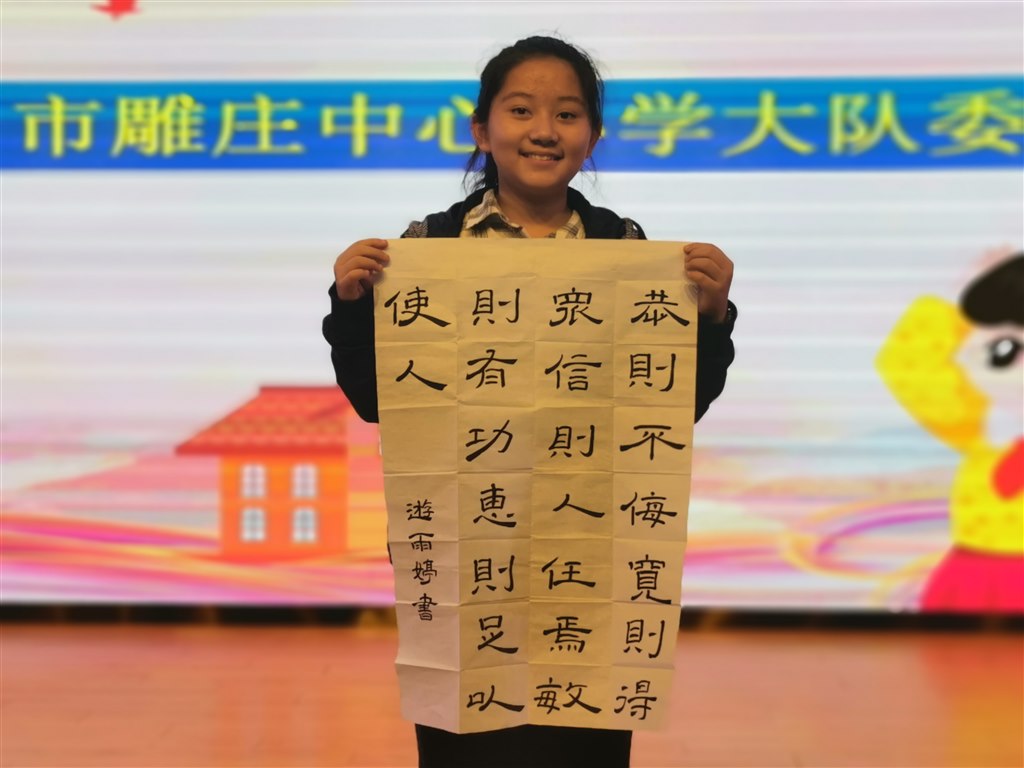 市雕庄中心
学大队委
恭則不侮寬則得
衆信則人任焉敏
則有功惠則足以
使人
遊雨婷書